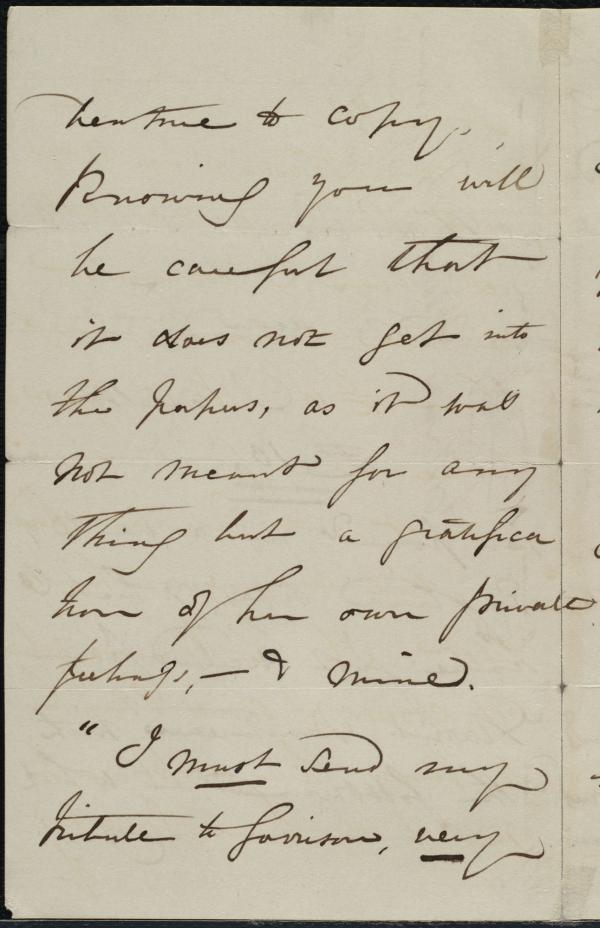 venture to copy,
Knowing you will
be careful that
it does not get into
the papers, as it was
not meant for any
thing but a gratifica
tion of her own private
feelings, — & mine.
"I must send my
tribute to Garrison, very